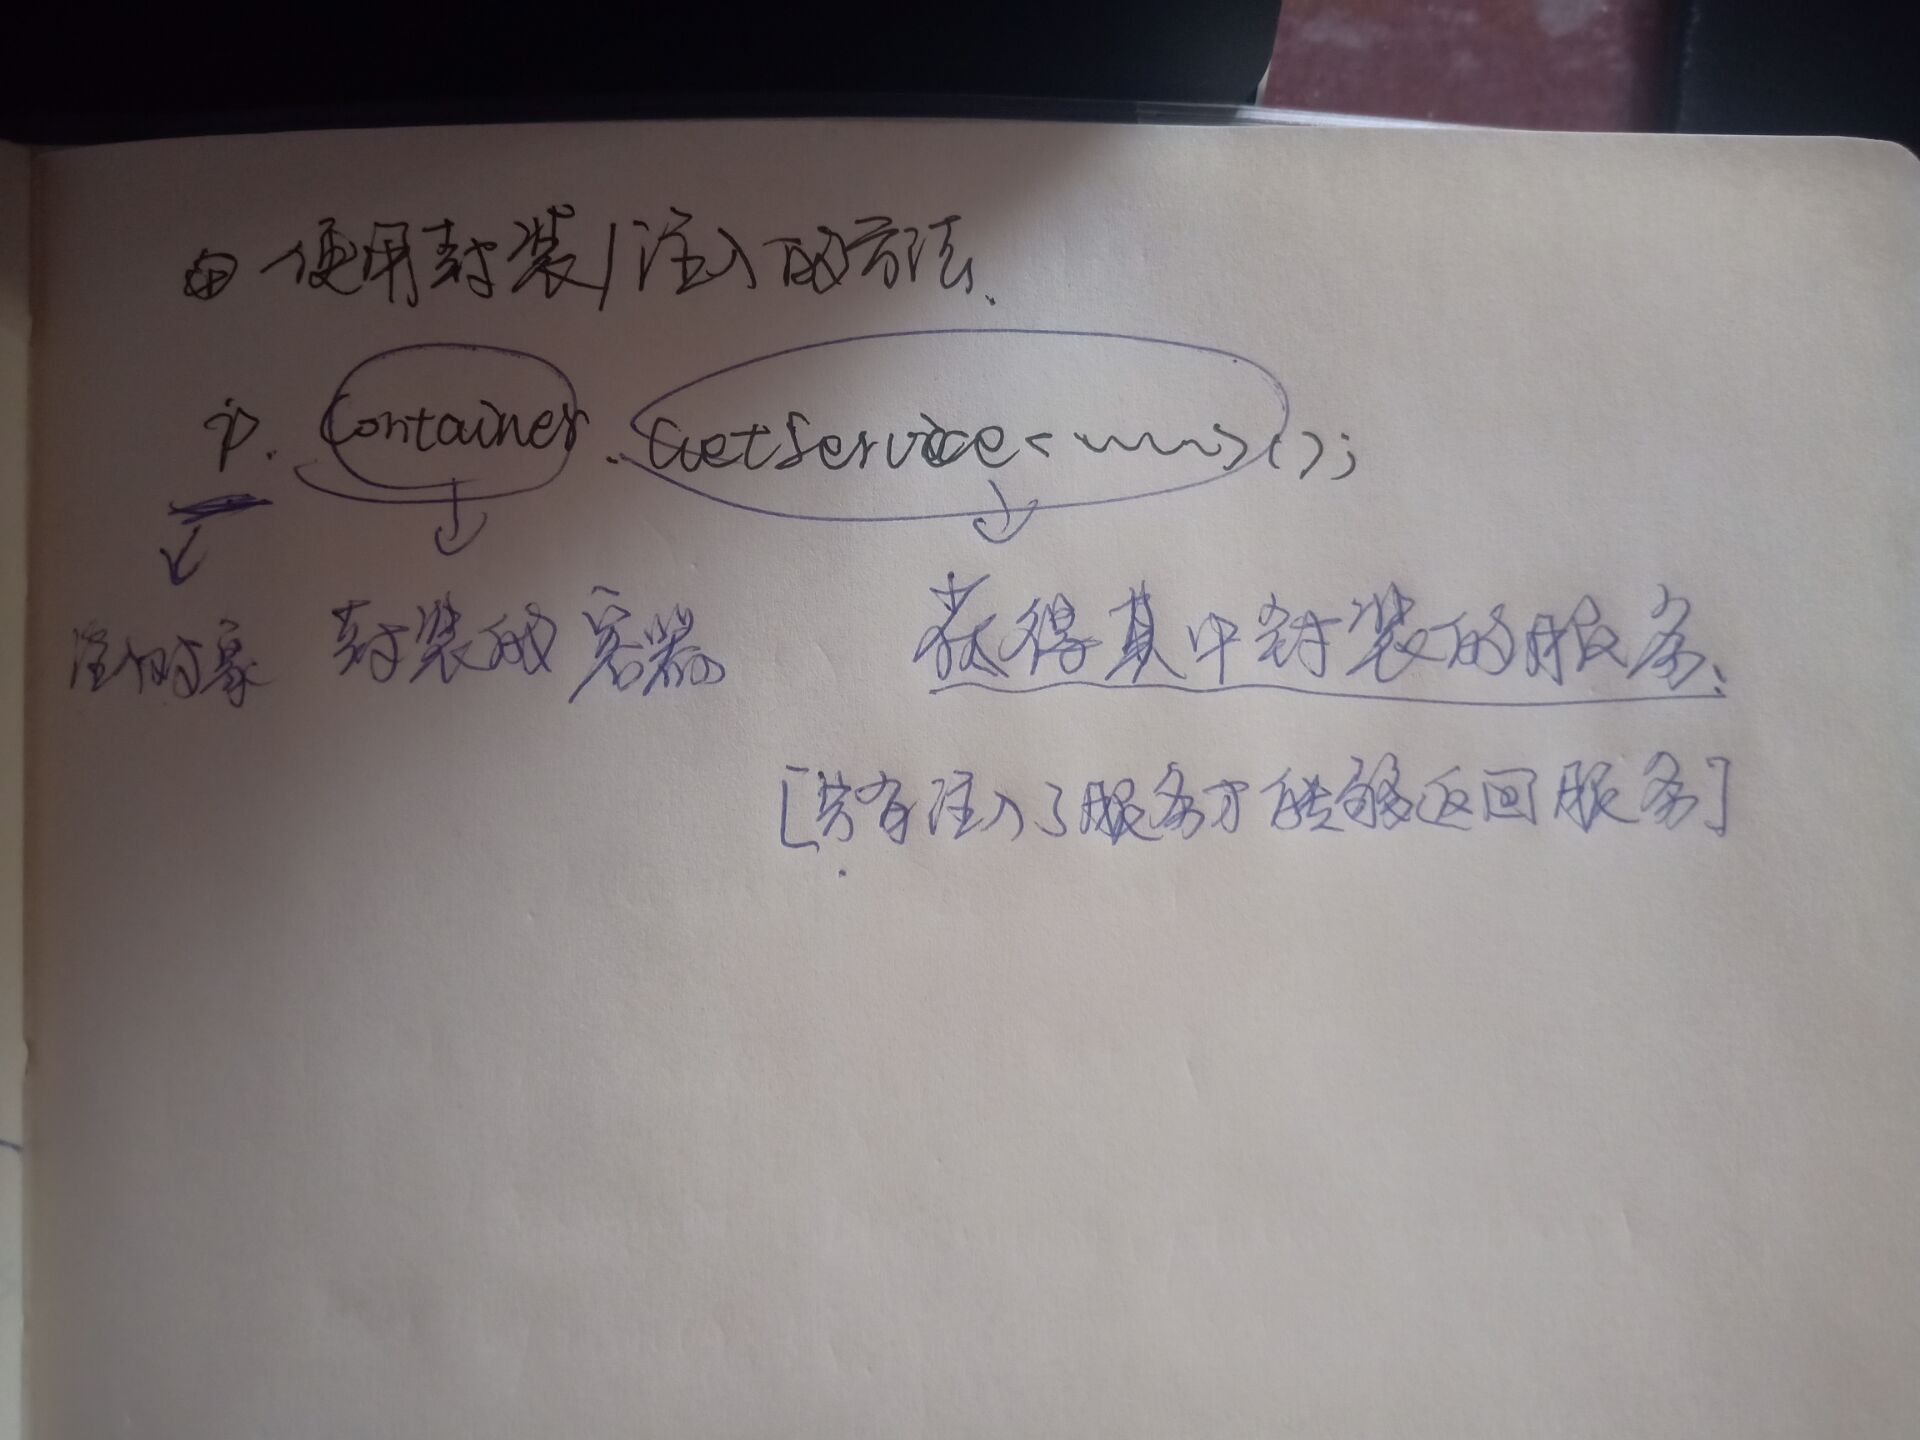 ④ 使用封装/注入的方法.
P. Container.GetService<~~~>();
注入对象 封装的容器 获得其中封装的服务.
[只有注入了服务才能够返回服务]